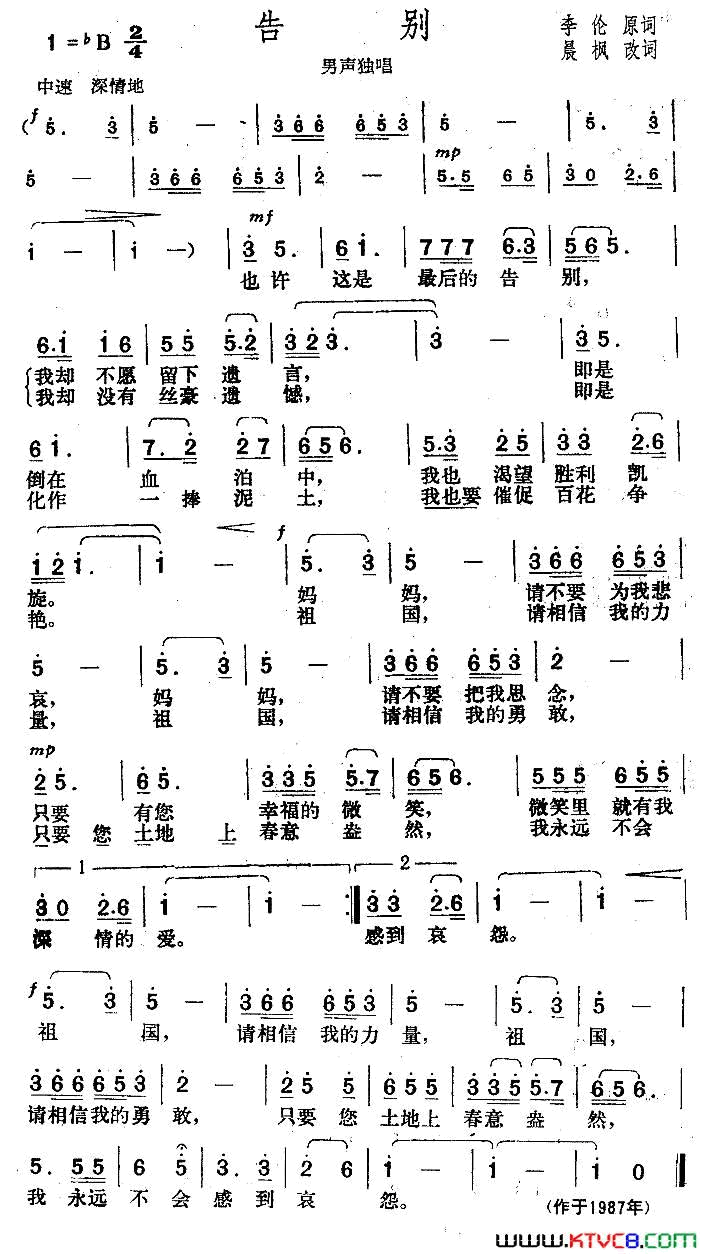 告 别
1=♭B 2/4
李 伦 原词
晨 枫 改词
男声独唱
中速 深情地
f
(5. 3 | 5 - | 3 6 6 6 5 3 | 5 - | 5. 3 |
mp
5 - | 3 6 6 6 5 3 | 2 - | 5.5 6 5 | 3 0 2.6 |
mf
i - | i -) | 3 5. | 6 i. | 7 7 7 6.3 | 5 6 5. |
也许 这是 最后的 告 别,
6.i i 6 | 5 5 5.2 | 3 2 3. | 3 - | 3 5. |
我却 不愿 留下 遗 言, 即是
我却 没有 丝豪 遗 憾, 即是
6 i. | 7. 2 2 7 | 6 5 6. | 5.3 2 5 | 3 3 2.6 |
倒在 血 泊 中, 我也 渴望 胜利 凯
化作 一 捧 泥 土, 我也要 催促 百花 争
f
i 2 i. | i - | 5. 3 | 5 - | 3 6 6 6 5 3 |
旋。 妈 妈, 请不要 为我悲
艳。 祖 国, 请相信 我的力
5 - | 5. 3 | 5 - | 3 6 6 6 5 3 | 2 - |
哀, 妈 妈, 请不要 把我思 念,
量, 祖 国, 请相信 我的勇 敢,
mp
2 5. | 6 5. | 3 3 5 5.7 | 6 5 6. | 5 5 5 6 5 5 |
只要 有您 幸福的 微 笑, 微笑里 就有我
只要 您土地 上 春意 盎 然, 我永远 不会
1 2
3 0 2.6 | i - | i - :| 3 3 2.6 | i - | i - |
深 情的 爱。 感到 哀 怨。
f
5. 3 | 5 - | 3 6 6 6 5 3 | 5 - | 5. 3 | 5 - |
祖 国, 请相信 我的力 量, 祖 国,
3 6 6 6 5 3 | 2 - | 2 5 5 | 6 5 2 | 3 3 5 5.7 | 6 5 6. |
请相信我的勇 敢, 只要 您 土地上 春意 盎 然,
5. 5 5 | 6 5 | 3. 3 | 2 6 | i - | i - | i 0 ‖
我 永远 不 会 感 到 哀 怨。
(作于1987年)
www.KTVC8.com